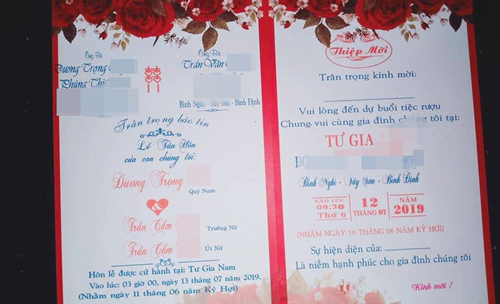 Ông Bà
Dương Trọng
Phùng Thị
Ông Bà
Trần Văn
Bình Nghi - Tây Sơn - Bình Định
Trân trọng báo tin
Lễ Tân Hôn
của con chúng tôi:
Dương Trọng
Quý Nam
Trần Cẩm
Trưởng Nữ
Trần Cẩm
Út Nữ
Hôn lễ được cử hành tại: Tư Gia Nam
Vào lúc: 03 giờ 00, ngày 13 tháng 07 năm 2019,
(Nhằm ngày 11 tháng 06 năm Kỷ Hợi)
Thiệp Mời
Trân trọng kính mời:
Vui lòng đến dự buổi tiệc rượu
Chung vui cùng gia đình chúng tôi tại:
TƯ GIA
Bình Nghi - Tây Sơn - Bình Định
VÀO LÚC
09:30
Thứ 6
12
THÁNG 07
NĂM
2019
(NHẰM NGÀY 10 THÁNG 06 NĂM KỶ HỢI)
Sự hiện diện của:
Là niềm hạnh phúc cho gia đình chúng tôi
Kính mời !